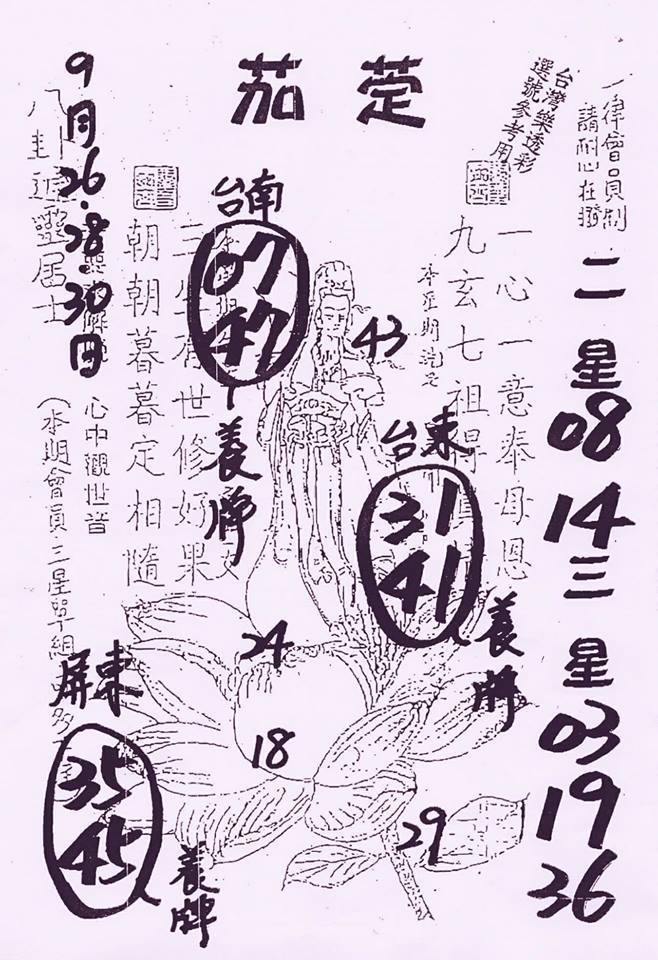 茄萣
台灣樂透彩
選號參考用
一律會員制
請耐心在撥
9月26.28.30日
台南
07
47
養牌
43
台東
31
41
養牌
二星
08
14
三星
03
19
36
一心一意奉母恩
九玄七祖得
本星期說之
三生有世修好果
朝朝暮暮定相隨
心中觀世音
(本期會員.三星單組
24
18
29
屏東
35
45
養牌